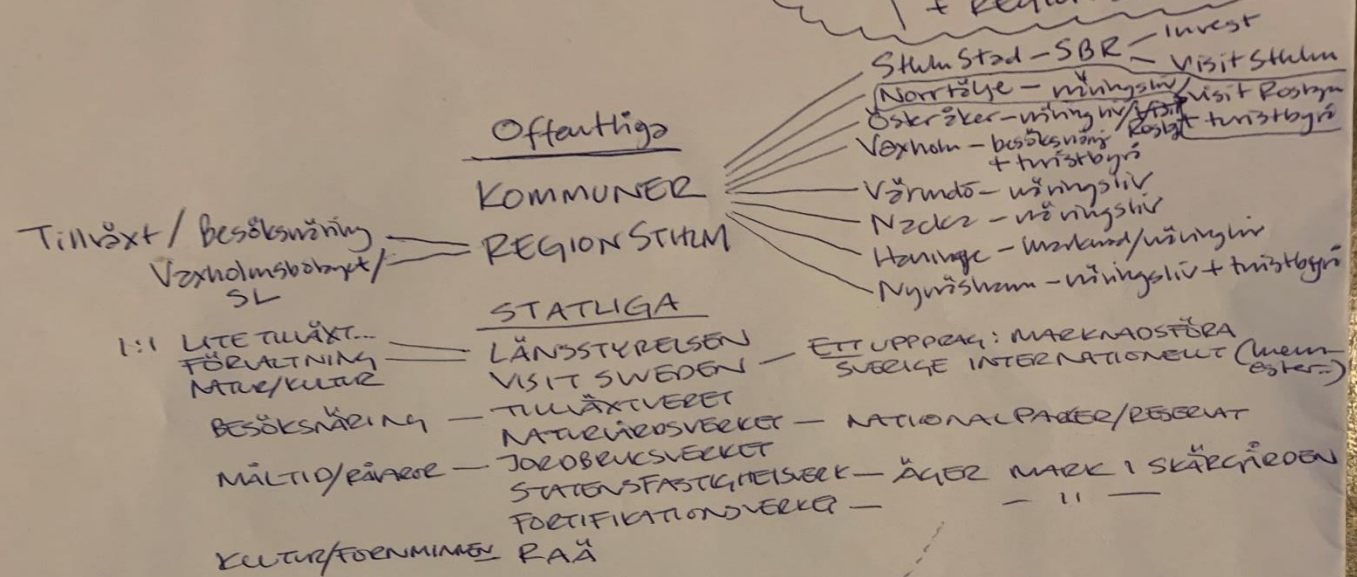 + REGION
Sthlm Stad – SBR – Invest
– Visit Sthlm
Norrtälje – näringsliv/Visit Roslagen
turistbyrå
Österåker – näringsliv/Visit Roslag
Vaxholm – besöksnäring
+ turistbyrå
Värmdö – näringsliv
Nacka – näringsliv
Haninge – marknad/näringsliv
Nynäshamn – näringsliv + turistbyrå
Offentliga
KOMMUNER
Tillväxt / Besöksnäring REGION STHLM
Vaxholmsbolaget/
SL
STATLIGA
1:1 LITE TILLÄXT... LÄNSSTYRELSEN
FÖRVALTNING
NATUR/KULTUR
VISIT SWEDEN – ETT UPPDRAG: MARKNADSFÖRA
SVERIGE INTERNATIONELLT
BESÖKSNÄRING – TILLVÄXTVERKET
NATURVÅRDSVERKET – NATIONALPARKER/RESERVAT
MÅLTID/RÅVAROR – JORDBRUKSVERKET
STATENS FASTIGHETSVERK – ÄGER MARK I SKÄRGÅRDEN
FORTIFIKATIONSVERKET – – 11 –
KULTUR/FORNMINNEN RAÄ